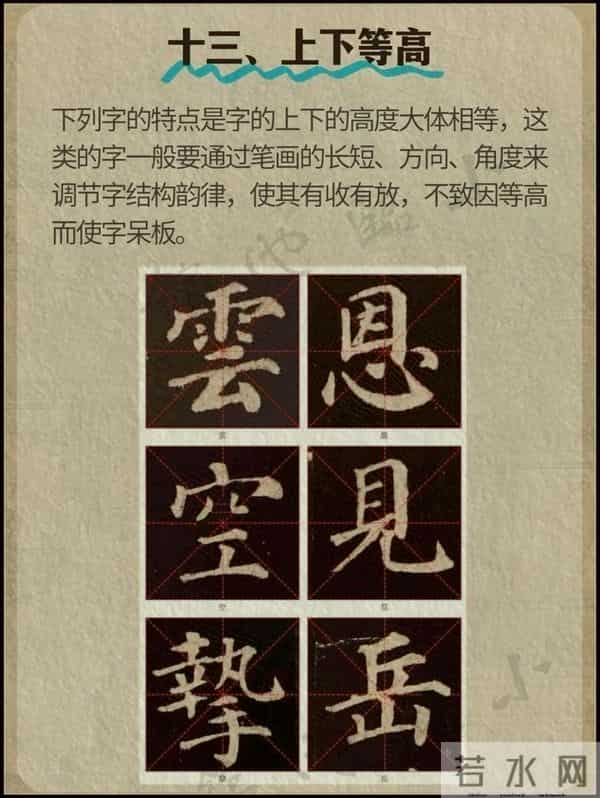 十三、上下等高
下列字的特点是字的上下的高度大体相等，这
类的字一般要通过笔画的长短、方向、角度来
调节字结构韵律，使其有收有放，不致因等高
而使字呆板。
雲 恩
空 見
摯 岳
若水网